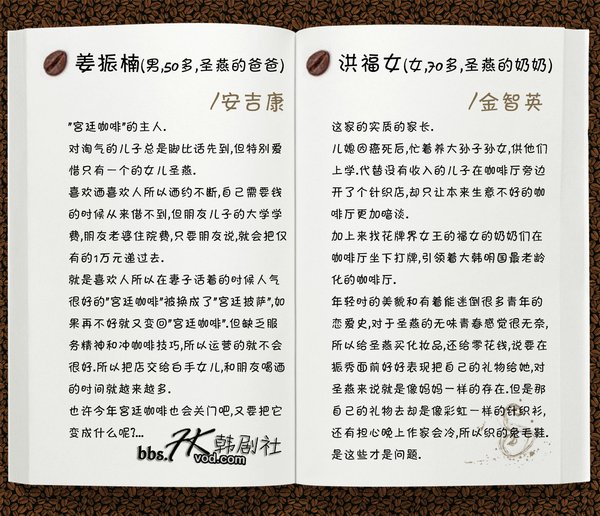 姜振楠(男,50多,圣燕的爸爸)
/安吉康
"宫廷咖啡"的主人.
对淘气的儿子总是脚比话先到,但特别爱
惜只有一个的女儿圣燕.
喜欢酒喜欢人所以酒约不断,自己需要钱
的时候从来借不到,但朋友儿子的大学学
费,朋友老婆住院费,只要朋友说,就会把仅
有的1万元递过去.
就是喜欢人所以在妻子活着的时候人气
很好的"宫廷咖啡"被换成了"宫廷披萨",如
果再不好就又变回"宫廷咖啡".但缺乏服
务精神和冲咖啡技巧,所以运营的就不会
很好.所以把店交给白手女儿,和朋友喝酒
的时间就越来越多.
也许今年宫廷咖啡也会关门吧,又要把它
变成什么呢?...
bbs.HK韩剧社
vod.com
洪福女(女,70多,圣燕的奶奶)
/金智英
这家的实质的家长.
儿媳因癌死后,忙着养大孙子孙女,供他们
上学.代替没有收入的儿子在咖啡厅旁边
开了个针织店,却只让本来生意不好的咖
啡厅更加暗淡.
加上来找花牌界女王的福女的奶奶们在
咖啡厅坐下打牌,引领着大韩明国最老龄
化的咖啡厅.
年轻时的美貌和有着能迷倒很多青年的
恋爱史,对于圣燕的无味青春感觉很无奈,
所以给圣燕买化妆品,还给零花钱,说要在
振秀面前好好表现把自己的礼物给她,对
圣燕来说就是像妈妈一样的存在.但是那
自己的礼物去却是像彩虹一样的针织衫,
还有担心晚上作家会冷,所以织的兔毛鞋.
是这些才是问题.